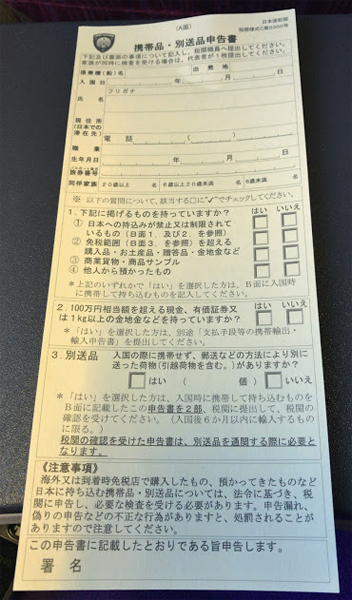 (A面)
日本国税関
税関様式C第5360号
携帯品・別送品申告書
下記及び裏面の事項について記入し、税関職員へ提出してください。
家族が同時に検査を受ける場合は、代表者が1枚提出してください。
搭乗機(船)名 出発地
入国日 年 月 日
フリガナ
氏名
現住所
(日本での
滞在先)
電話 ( )
職業
生年月日 年 月 日
旅券番号
同伴家族 20歳以上 名 6歳以上20歳未満 名 6歳未満 名
※ 以下の質問について、該当する□に"✓"でチェックしてください。
1.下記に掲げるものを持っていますか? はい いいえ
① 日本への持込みが禁止又は制限されて
いるもの(B面1.及び2.を参照)
② 免税範囲(B面3.を参照)を超える
購入品・お土産品・贈答品・金地金など
③ 商業貨物・商品サンプル
④ 他人から預かったもの
*上記のいずれかで「はい」を選択した方は、B面に入国時
に携帯して持ち込むものを記入してください。
2.100万円相当額を超える現金、有価証券又 はい いいえ
は1kg以上の金地金などを持っていますか?
*「はい」を選択した方は、別途「支払手段等の携帯輸出・
輸入申告書」を提出してください。
3.別送品 入国の際に携帯せず、郵送などの方法により別に
送った荷物(引越荷物を含む。)がありますか?
□はい ( 個) □いいえ
*「はい」を選択した方は、入国時に携帯して持ち込むものを
B面に記載したこの申告書を2部、税関に提出して、税関の
確認を受けてください。(入国後6か月以内に輸入するもの
に限る。)
税関の確認を受けた申告書は、別送品を通関する際に必要と
なります。
《注意事項》
海外又は到着時免税店で購入したもの、預かってきたものなど
日本に持ち込む携帯品・別送品については、法令に基づき、税
関に申告し、必要な検査を受ける必要があります。申告漏れ、
偽りの申告などの不正な行為がありますと、処罰されることが
ありますので注意してください。
この申告書に記載したとおりである旨申告します。
署名